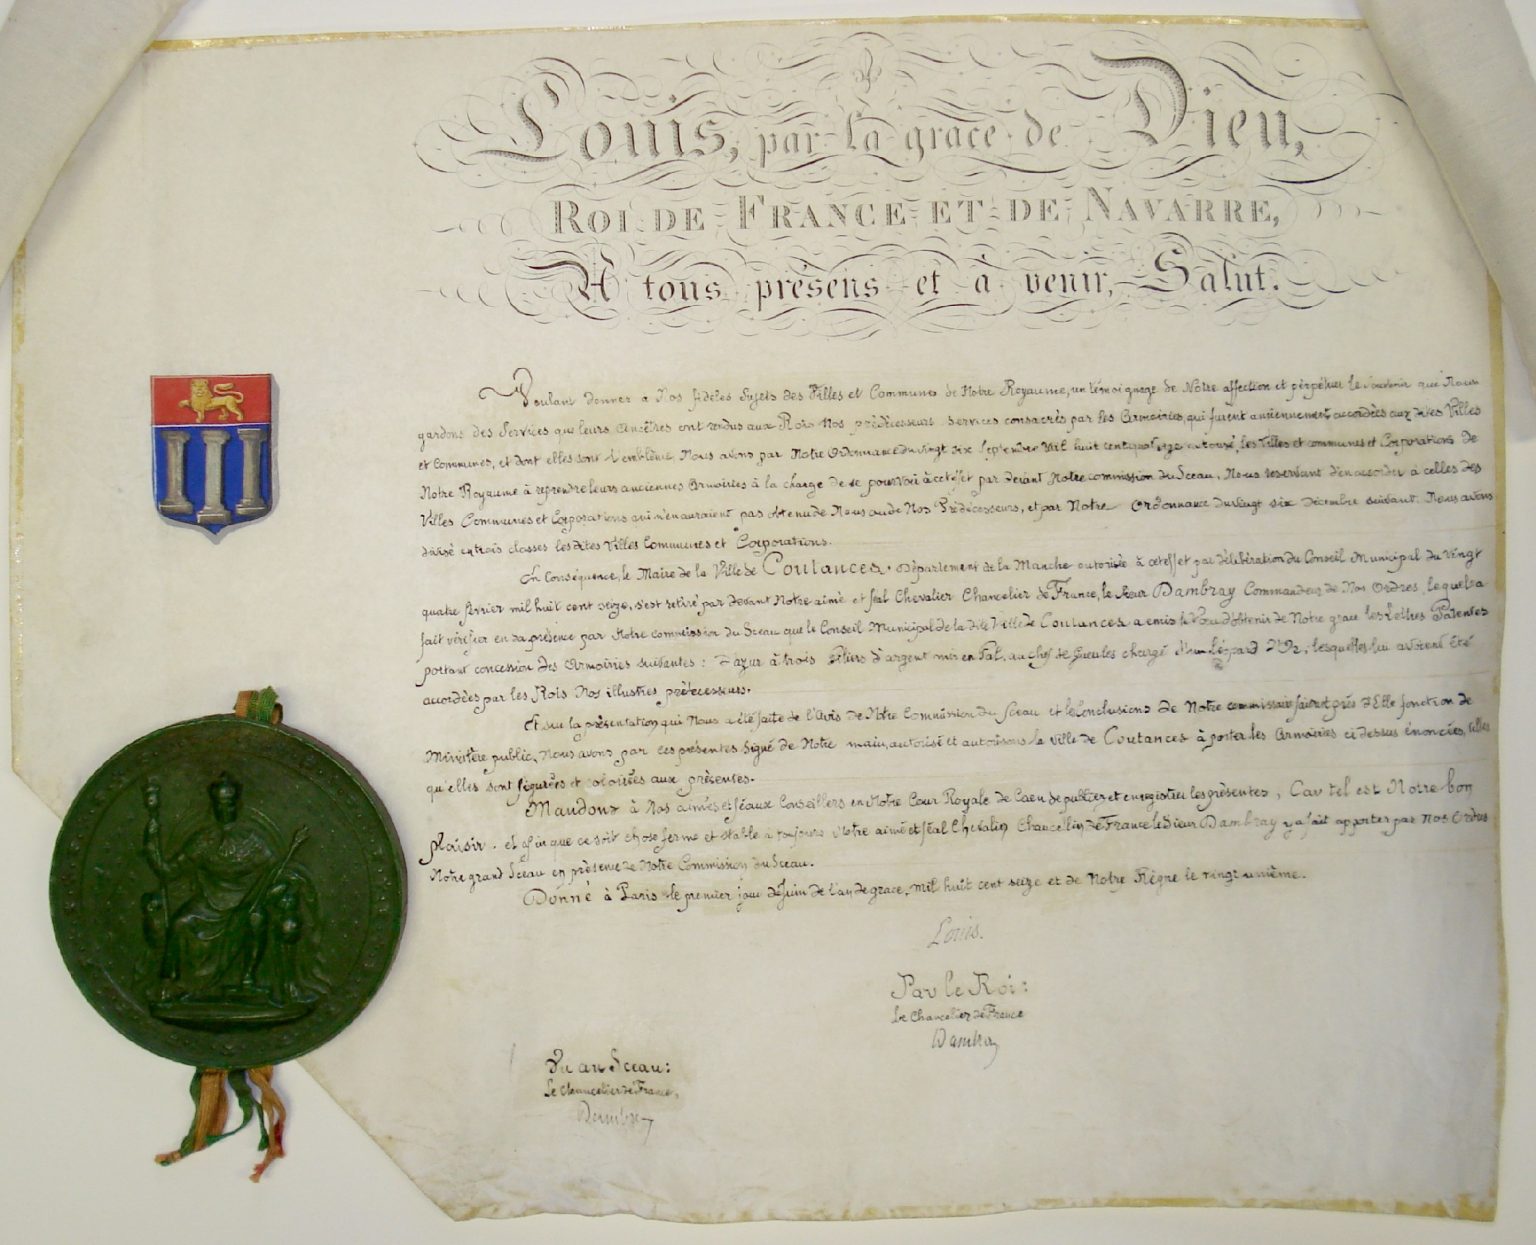 Louis, par la grace de Dieu,
Roi de France et de Navarre,
A tous présens et à venir, Salut.
Voulant donner a Nos fidèles Sujets des Villes et Communes de Notre Royaume, un témoignage de Notre affection et perpétuer le souvenir que Nous
gardons des Services que leurs ancêtres ont rendus aux Rois Nos prédécesseurs services consacrés par les Armoiries, qui furent anciennement accordées aux dites Villes
et Communes, et dont elles sont l'emblême, Nous avons par Notre Ordonnance du vingt six Septembre Mil huit cent quatorze autorisé, les Villes et communes et Corporations de
Notre Royaume à reprendre leurs anciennes Armoiries à la charge de se pourvoir à cet effet par devant Notre commission du Sceau, Nous reservant d'en accorder à celles des
Villes Communes et Corporations qui n'en auraient pas obtenu de Nous ou de Nos Prédécesseurs, et par Notre Ordonnance du vingt six décembre suivant Nous avons
divisé en trois classes les dites Villes Communes et Corporations.
En Conséquence, le Maire de la Ville de Coutances, Département de la Manche autorisé à cet effet par délibération du Conseil Municipal du Vingt
quatre février mil huit cent seize, s'est retiré par devant Notre aimé et féal Chevalier Chancelier de France, le Sieur Dambray Commandeur de Nos Ordres, lequel a
fait vérifier en sa présence par Notre commission du Sceau que le Conseil Municipal de la dite Ville de Coutances a émis le Vœu d'obtenir de Notre grace les Lettres Patentes
portant concession des Armoiries suivantes: d'azur à trois Piliers d'argent mis en Fal, au chef de Gueules chargé d'un Léopard d'Or; lesquelles lui avoient été
accordées par les Rois Nos illustres prédécesseurs.
Et sur la présentation qui Nous a été faite de l'Avis de Notre Commission du Sceau et les Conclusions de Notre commissaire faisant près d'Elle fonction de
Ministère public, Nous avons par ces présentes signé de Notre main, autorisé et autorisons la Ville de Coutances à porter les Armoiries ci dessus énoncées, telles
qu'elles sont figurées et coloriées aux présentes.
Mandons à Nos aimés et féaux Conseillers en Notre Cour Royale de Caen de publier et enregistrer les présentes, Car tel est Notre bon
plaisir. et afin que ce soit chose ferme et stable à toujours Notre aimé et féal Chevalier Chancelier de France le Sieur Dambray y a fait apporter par nos Ordres
Notre grand Sceau en présence de Notre Commission du Sceau.
Donné à Paris le premier jour de Juin de l'an de grace, mil huit cent seize et de Notre Règne le vingt unième.
Louis.
Par le Roi:
Le Chancelier de France
Dambray
Vu au Sceau:
Le Chancelier de France,
Dambray